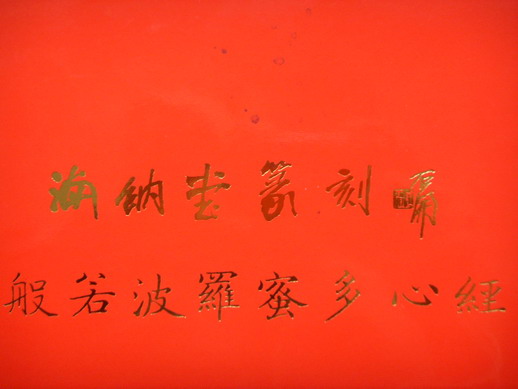 海納堂篆刻
般若波羅蜜多心經